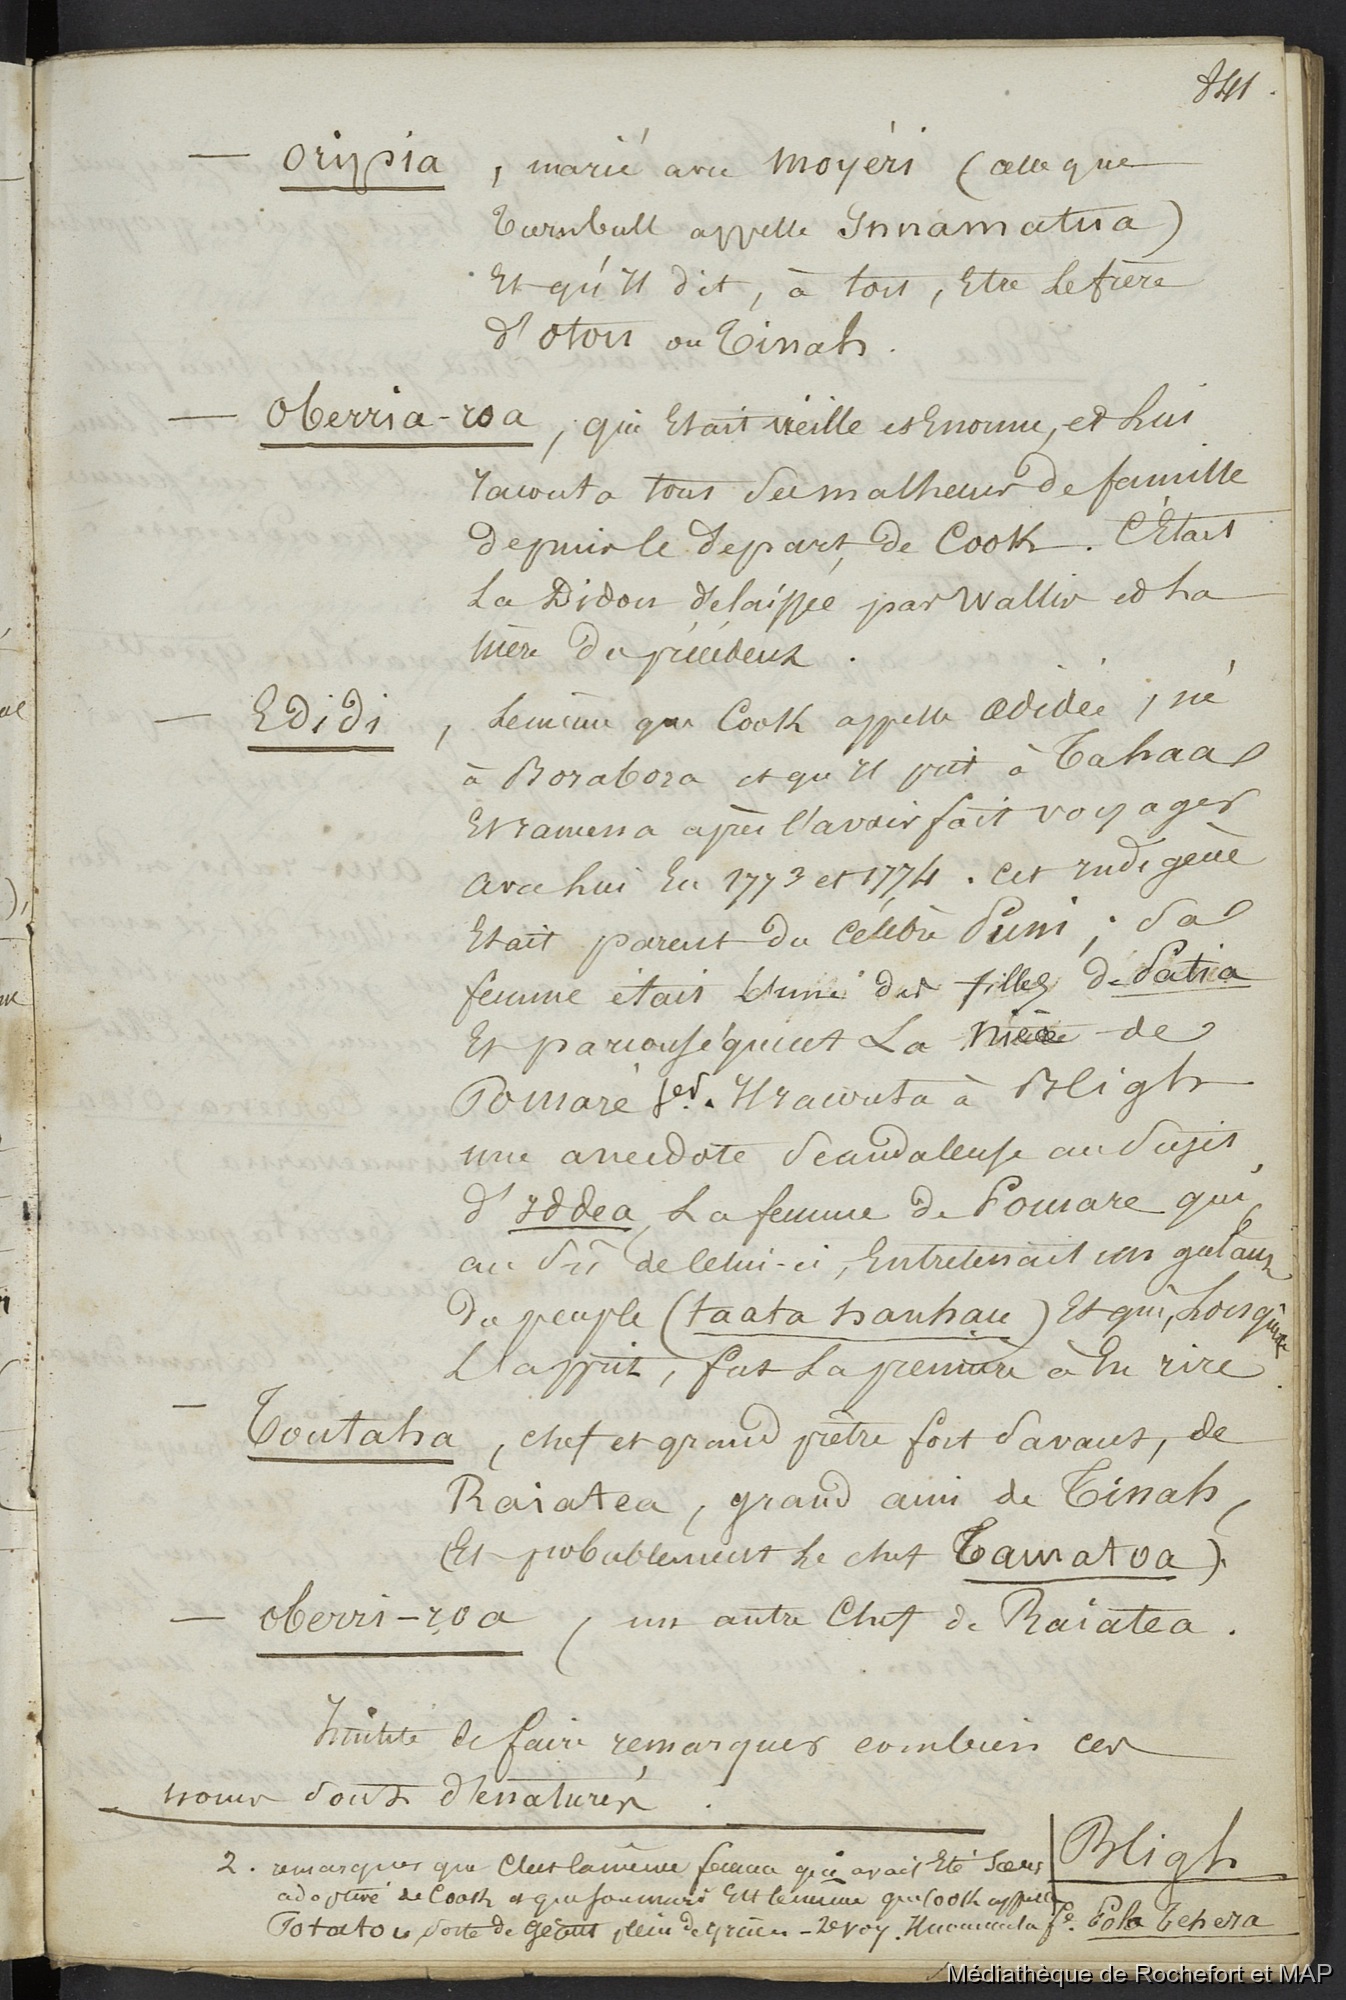 841.
— Oripia, marié avec Moyéri (celle que
Turnbull appelle Innamatua)
Et qu'il dit, à tort, Etre le frère
d'otou ou Tinah.
— Oberria-roa, qui Etait vieille et Enorme, et lui
raconta tous ses malheurs de famille
depuis le départ de Cook. C'Etait
la Didon delaissée par Wallis et la
mère du précédent.
— Edidi, le même que Cook appelle œdidée, né
à Borabora et qu'il prit à Tahaa
Et ramena après l'avoir fait voyager
avec lui En 1773 et 1774. cet indigène
Etait parent du célèbre Puni; sa
femme était l'une des filles de Patia
Et par conséquent la nièce de
Pomaré 1er. Il raconta à Bligh
une anecdote scandaleuse au sujet
d'Iddea, la femme de Pomare qui,
au su de celui-ci, Entretenait un galant
du peuple (taata hauhau) Et qui, lorsqu'il
l'apprit, fut la première à En rire.
— Toutaha, chef et grand prêtre fort savant, de
Raiatea, grand ami de Tinah,
(Et probablement le chef Tamatoa).
— oberri-roa, un autre Chef de Raiatea.
Inutile de faire remarquer combien ces
noms sont dénaturés.
2. remarquer que c'est la même femme qui avait Eté
adoptive de Cook et que son mari Est le même que Cook appelle
Potatou sorte de géant plein de
Bligh
Pola Tehera
Médiathèque de Rochefort et MAP